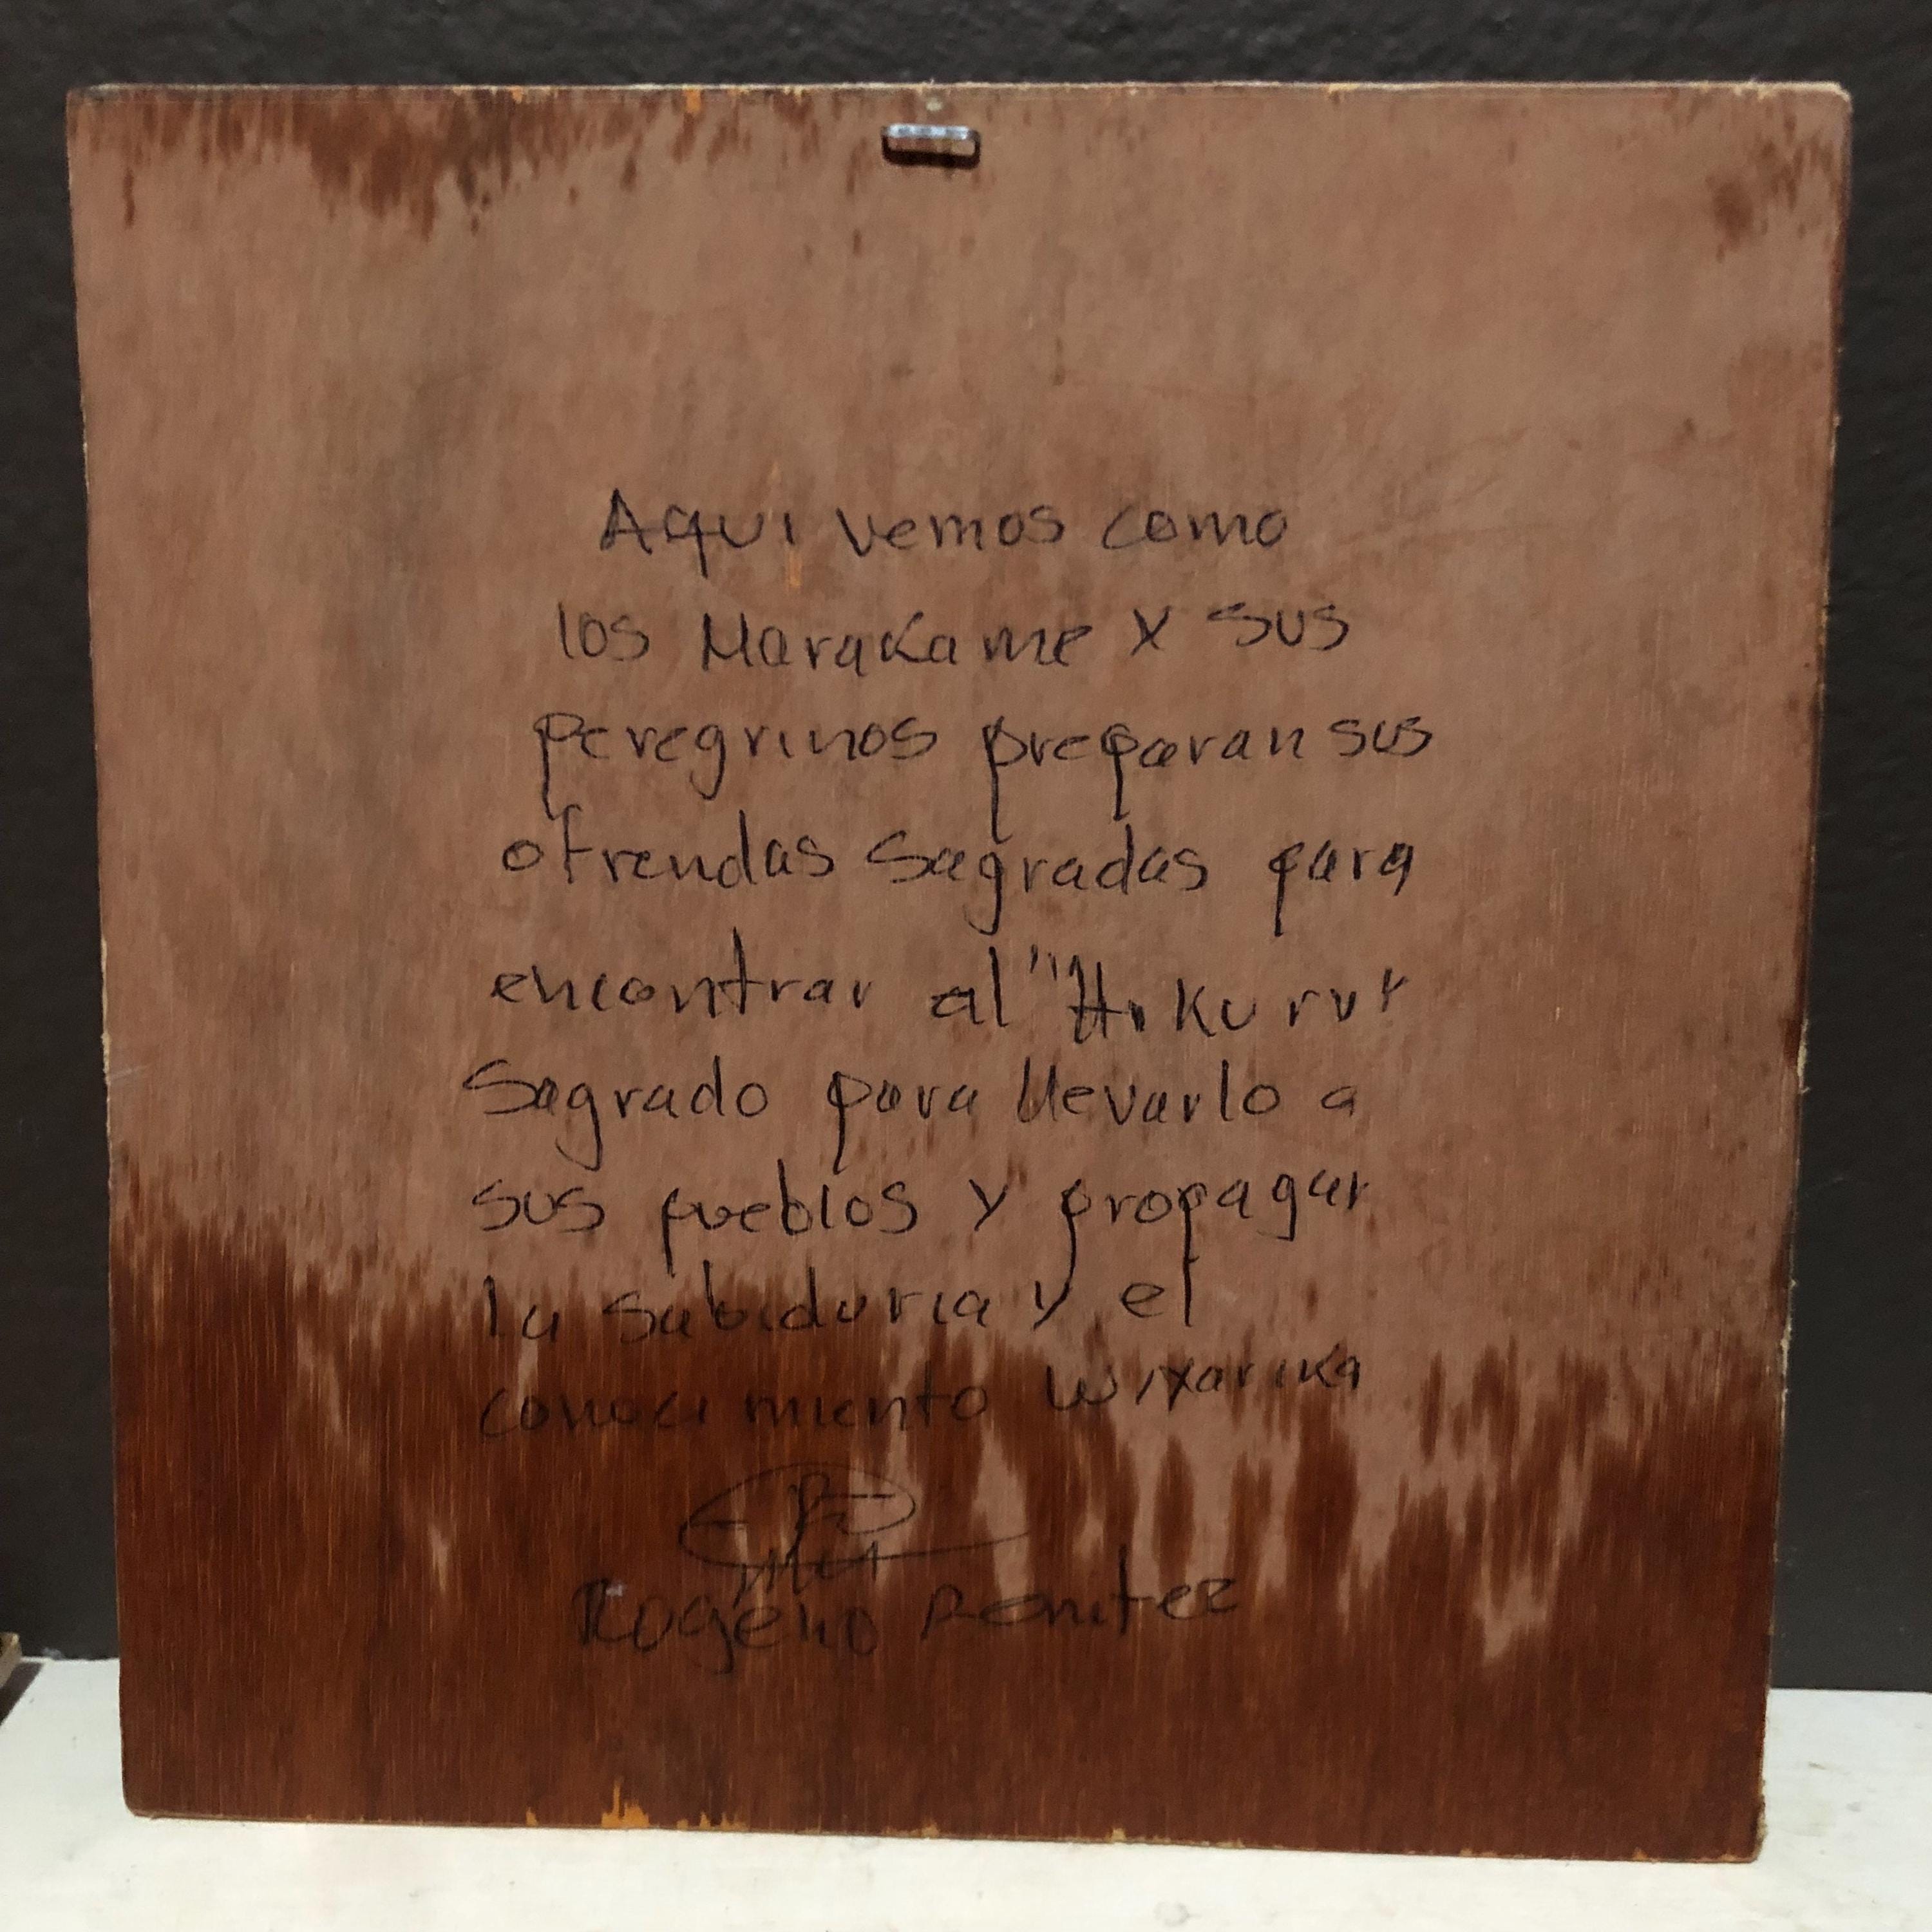 Aqui vemos como
los Marakame y sus
peregrinos preparan sus
ofrendas sagradas para
encontrar al "Hikuri"
Sagrado para llevarlo a
sus pueblos y propagar
la sabiduria y el
conocimiento Wixarika
Rogelio Benitez